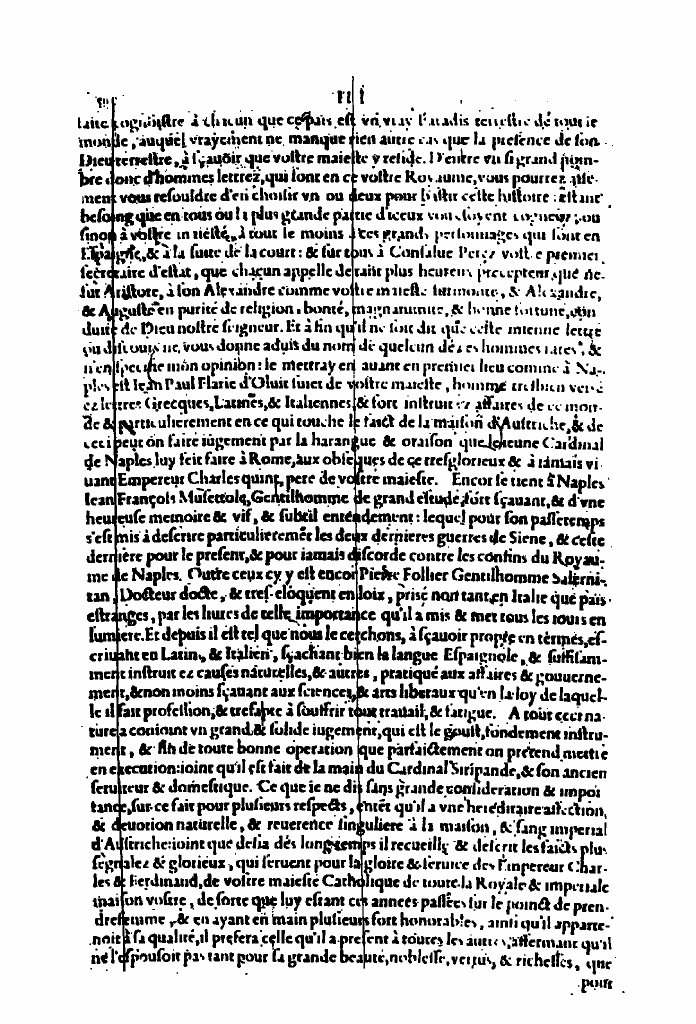 faire cognoistre à chacun que ce païs est vn vray Paradis terrestre de tout le
monde, auquel vrayement ne manque rien autre cas que la presence de son
Dieu terrestre, à sçauoir que vostre maiesté y reside. D'entre vn si grand nom-
bre donc d'hommes lettrez, qui sont en ce vostre Royaume, vous pourrez aise-
ment vous resouldre d'en choisir vn ou deux pour bastir ceste histoire: estant
besoing que en tous ou la plus grande partie d'iceux vous soyent cogneuz, ou
sinon à vostre maiesté, à tout le moins à ces grands personnages qui sont en
Espaigne, & à la suite de la court: & sur tous à Consalue Perez vostre premier
secretaire d'estat, que chacun appelle de tant plus heureux precepteur, que ne
fut Aristote, à son Alexandre comme vostre maiesté surmonte, & Alexandre,
& Auguste en purité de religion, bonté, magnanimité, & bonne fortune,
duite de Dieu nostre seigneur. Et à fin qu'il ne soit dit que ceste mienne lettre
ou discours ne vous donne aduis du nom de quelcun de ces hommes rares, &
n'en specifie mon opinion: ie mettray en auant en premier lieu comme à Na-
ples est Iean Paul Flarie d'Oluit suiet de vostre maiesté, homme tresbien versé
ez lettres Grecques, Latines, & Italiennes, & fort instruit ez affaires de ce mon-
de & particulierement en ce qui touche le faict de la maison d'Austriche, & de
ceci peut on faire iugement par la harangue & oraison que le ieune Cardinal
de Naples luy feit faire à Rome, aux obseques de ce tresglorieux & à iamais vi-
uant Empereur Charles quint, pere de vostre maiesté. Encor se tient à Naples
Iean François Musettolq, Gentilhomme de grand estude, fort sçauant, & d'vne
heureuse memoire & vif, & subtil entendement: lequel pour son passetemps
s'est mis à descrire particulieremẽt les deux dernieres guerres de Siene, & ceste
derniere pour le present, & pour iamais discorde contre les confins du Royau-
me de Naples. Outre ceux cy y est encor Pierre Follier Gentilhomme Salerni-
tan, Docteur docte, & tres-eloquent en loix, prisé non tant en Italie que païs
estranges, par les liures de telle importance qu'il a mis & met tous les iours en
lumiere. Et depuis il est tel que nous le cerchons, à sçauoir propre en termes, es-
criuant en Latin, & Italien, sçachant bien la langue Espaignole, & suffisam-
ment instruit ez causes naturelles, & autres, pratiqué aux affaires & gouuerne-
ment, & non moins sçauant aux sciences, & arts liberaux qu'en la loy de laquel-
le il fait profession, & tresapte à souffrir tout trauail, & fatigue. A tout cecy na-
ture a conioint vn grand & solide iugement, qui est le goust, fondement instru-
ment, & fin de toute bonne operation que parfaictement on pretend mettre
en execution: ioint qu'il est fait de la main du Cardinal Siripande, & son ancien
seruiteur & domestique. Ce que ie ne dis sans grande consideration & impor
tance, sur ce fait pour plusieurs respects, entẽt qu'il a vne hereditaire affection,
& deuotion naturelle, & reuerence singuliere à la maison, & sang imperial
d'Austriche: ioint que desia dés long temps il recueille & descrit les faicts plus
segnalez & glorieux, qui seruent pour la gloire & seruice des l'Empereur Char-
les & Ferdinand, de vostre maiesté Catholique de toute la Royale & imperiale
maison vostre, de sorte que luy estant ces années passées sur le poinct de pren-
dre femme, & en ayant en main plusieurs fort honorables, ainsi qu'il apparte-
noit à sa qualité, il prefera celle qu'il a present à toutes les autres, affermant qu'il
ne l'espousoit pas tant pour sa grande beauté, noblesse, vertus, & richesses, que
pour